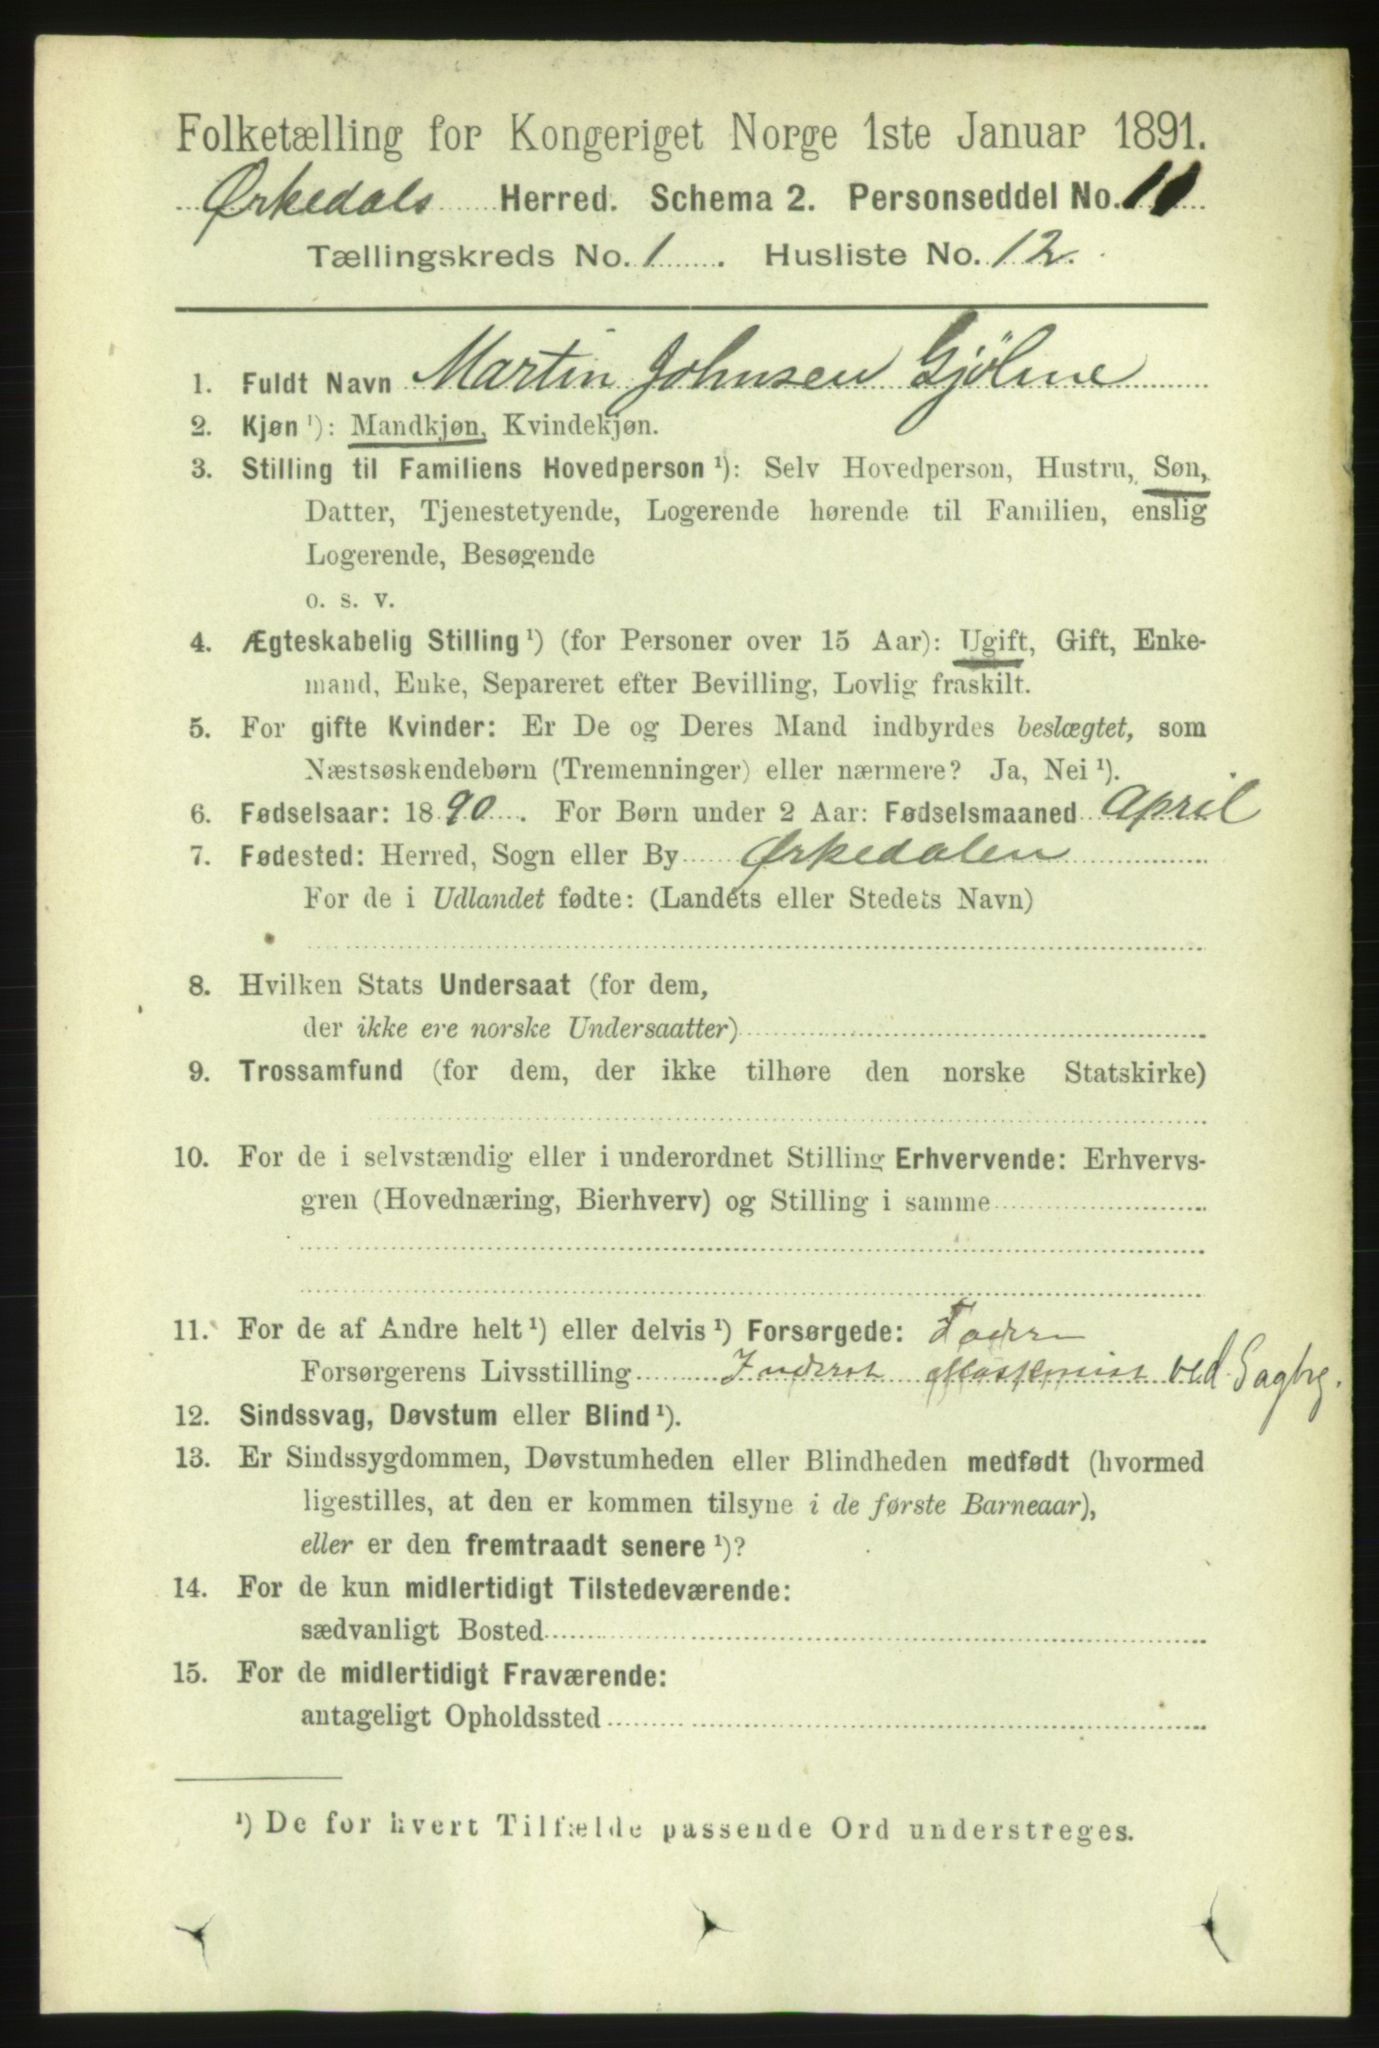 Folketælling for Kongeriget Norge 1ste Januar 1891.
Ørkedals Herred. Schema 2. Personseddel No. 10
Tællingskreds No. 1. Husliste No. 12.
1. Fuldt Navn Martin Johnsen Gjölme
2. Kjøn ¹): Mandkjøn, Kvindekjøn.
3. Stilling til Familiens Hovedperson ¹): Selv Hovedperson, Hustru, Søn,
Datter, Tjenestetyende, Logerende hørende til Familien, enslig
Logerende, Besøgende
o. s. v.
4. Ægteskabelig Stilling ¹) (for Personer over 15 Aar): Ugift, Gift, Enke-
mand, Enke, Separeret efter Bevilling, Lovlig fraskilt.
5. For gifte Kvinder: Er De og Deres Mand indbyrdes beslægtet, som
Næstsøskendebørn (Tremenninger) eller nærmere? Ja, Nei ¹).
6. Fødselsaar: 1890. For Børn under 2 Aar: Fødselsmaaned April
7. Fødested: Herred, Sogn eller By Ørkedalen
For de i Udlandet fødte: (Landets eller Stedets Navn)
8. Hvilken Stats Undersaat (for dem,
der ikke ere norske Undersaatter)
9. Trossamfund (for dem, der ikke tilhøre den norske Statskirke)
10. For de i selvstændig eller i underordnet Stilling Erhvervende: Erhvervs-
gren (Hovednæring, Bierhverv) og Stilling i samme
11. For de af Andre helt ¹) eller delvis ¹) Forsørgede: Faderen
Forsørgerens Livsstilling Inderst Maskinist ved Sagbrg.
12. Sindssvag, Døvstum eller Blind ¹).
13. Er Sindssygdommen, Døvstumheden eller Blindheden medfødt (hvormed
ligestilles, at den er kommen tilsyne i de første Barneaar),
eller er den fremtraadt senere ¹)?
14. For de kun midlertidigt Tilstedeværende:
sædvanligt Bosted
15. For de midlertidigt Fraværende:
antageligt Opholdssted
¹) De for hvert Tilfælde passende Ord understreges.